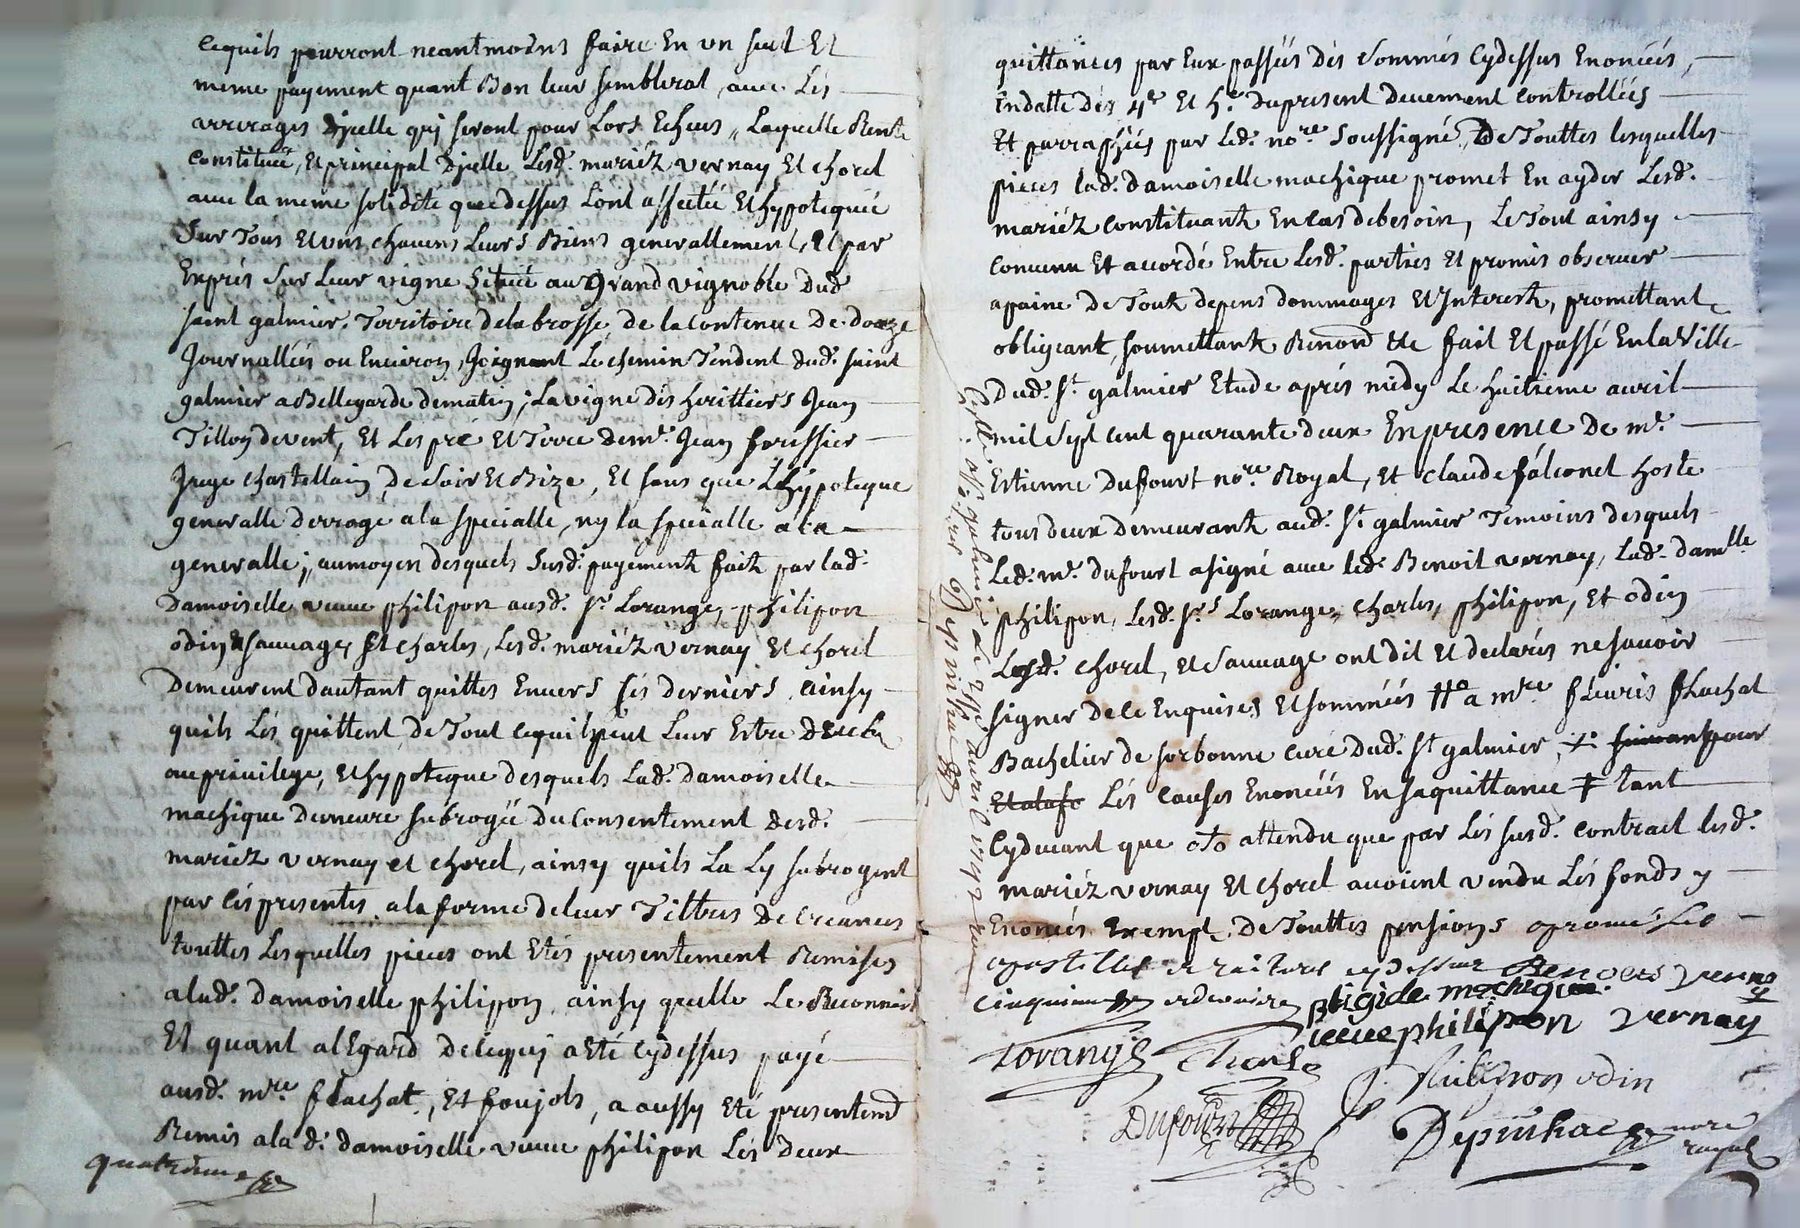 cequils pourront neantmoins faire En un seul Et
meme payement quant Bon leur semblerat, avec Lés
arrerages d'jcelle quj seront pour Lors Echeus, Laquelle Rente
Constituée, Et principal d'jcelle Lesd. mariéz vernay Et chorel
avec la meme solidité que dessus L'ont affectée Et hypotequée
Sur Tous Et uns chacuns Leurs Biens generallement, Et par
Exprés Sur Leur vigne Scituée au Grand vignoble Dud.
saint galmier, Territoire de la brosse, de la contenue De douze
Journallées ou Environ, Joignant Le chemin Tendent dud. saint
galmier a Bellegarde de matin, La vigne dés herittiers Jean
Tillon de vent, Et Les pré Et Terre de mr. Jean forissier
Juge chastellain, de soir Et Bize, Et sans que L'hypoteque
generalle derroge a la specialle, ny la specialle a la
generalle; au moyen desquels Susd. payementz faitz par lad.
Damoiselle veuve philipon ausd. sr. Lorange, philipon
odin Sauvage, Et charles, Lesd. mariéz vernay Et chorel
Demeurent dautant quittes Envers cés derniers, ainsy
quils Lés quittent de Tout ce quil peut Leur Estre deub
au privilege, Et hypoteque desquels Lad. damoiselle
machique demeure subrogée du Consentement desd.
mariéz vernay et chorel, ainsy quils La Ly subrogent
par cés presentes a la forme de leur Tiltres de creances
touttes Lesquelles pieces ont Etés presentement Remises
a lad. Damoiselle philipon, ainsy quelle Le Reconnoit
Et quant a lEgard de ce quj a Eté cydessus payé
ausd. mre. flachat, Et foujols, a aussy Eté presentemt
Remis a la d. damoiselle veuve philipon Lés deux
quatrieme
quittances par Eux passées dés sommes cydessus Enoncées,
En datte dés 4e Et 5e du present deuement controllées
Et parraphées par Led. nore soussigné, De Touttes lesquelles
pieces lad. damoiselle machique promet En ayder Lesd.
mariéz constituantz En cas de besoin, Le Tout ainsy
convenu Et accordé Entre Lesd. parties Et promis observer
a paine de Toutz depens dommages Et Interestz, promettantz
obligeant, soumettantz Renond Etc fait Et passé En la Ville
Dud. St galmier Etude aprés midy Le huitieme avril
mil sept cent quarante deux En presence De mr.
Etienne Dufourt nore. Royal, Et Claude falconet hoste
tous deux demeurantz aud. St galmier Temoins desquels
Led. mr. Dufourt a signé avec led. Benoit vernay, Lad. damlle
philipon, Lesd. srs Lorange, charles, philipon, Et odin
Lesd. chorel, Et Sauvage ont dit Et declarés ne savoir
signer de ce Enquises Et sommées a mre fleuris flachat
Bachelier de sorbonne curé dud. St galmier, pour
Lés causes Enoncées En sa quittance tant
cydevant que attendu que par Lés susd. contract lesd.
mariéz vernay Et chorel avoient vendu Lés fonds y
Enoncés Exempt De Touttes pensions aprouvé Les
apostilles et raitures cydessus Benoits verna
y
cinquieme et derniere pligide machique
veuve philipon vernay
Lorange Charles
philipon odin
Dufourt
Depinhac nore
royal
Contll. a St galmier Le avril 1742 Reçu